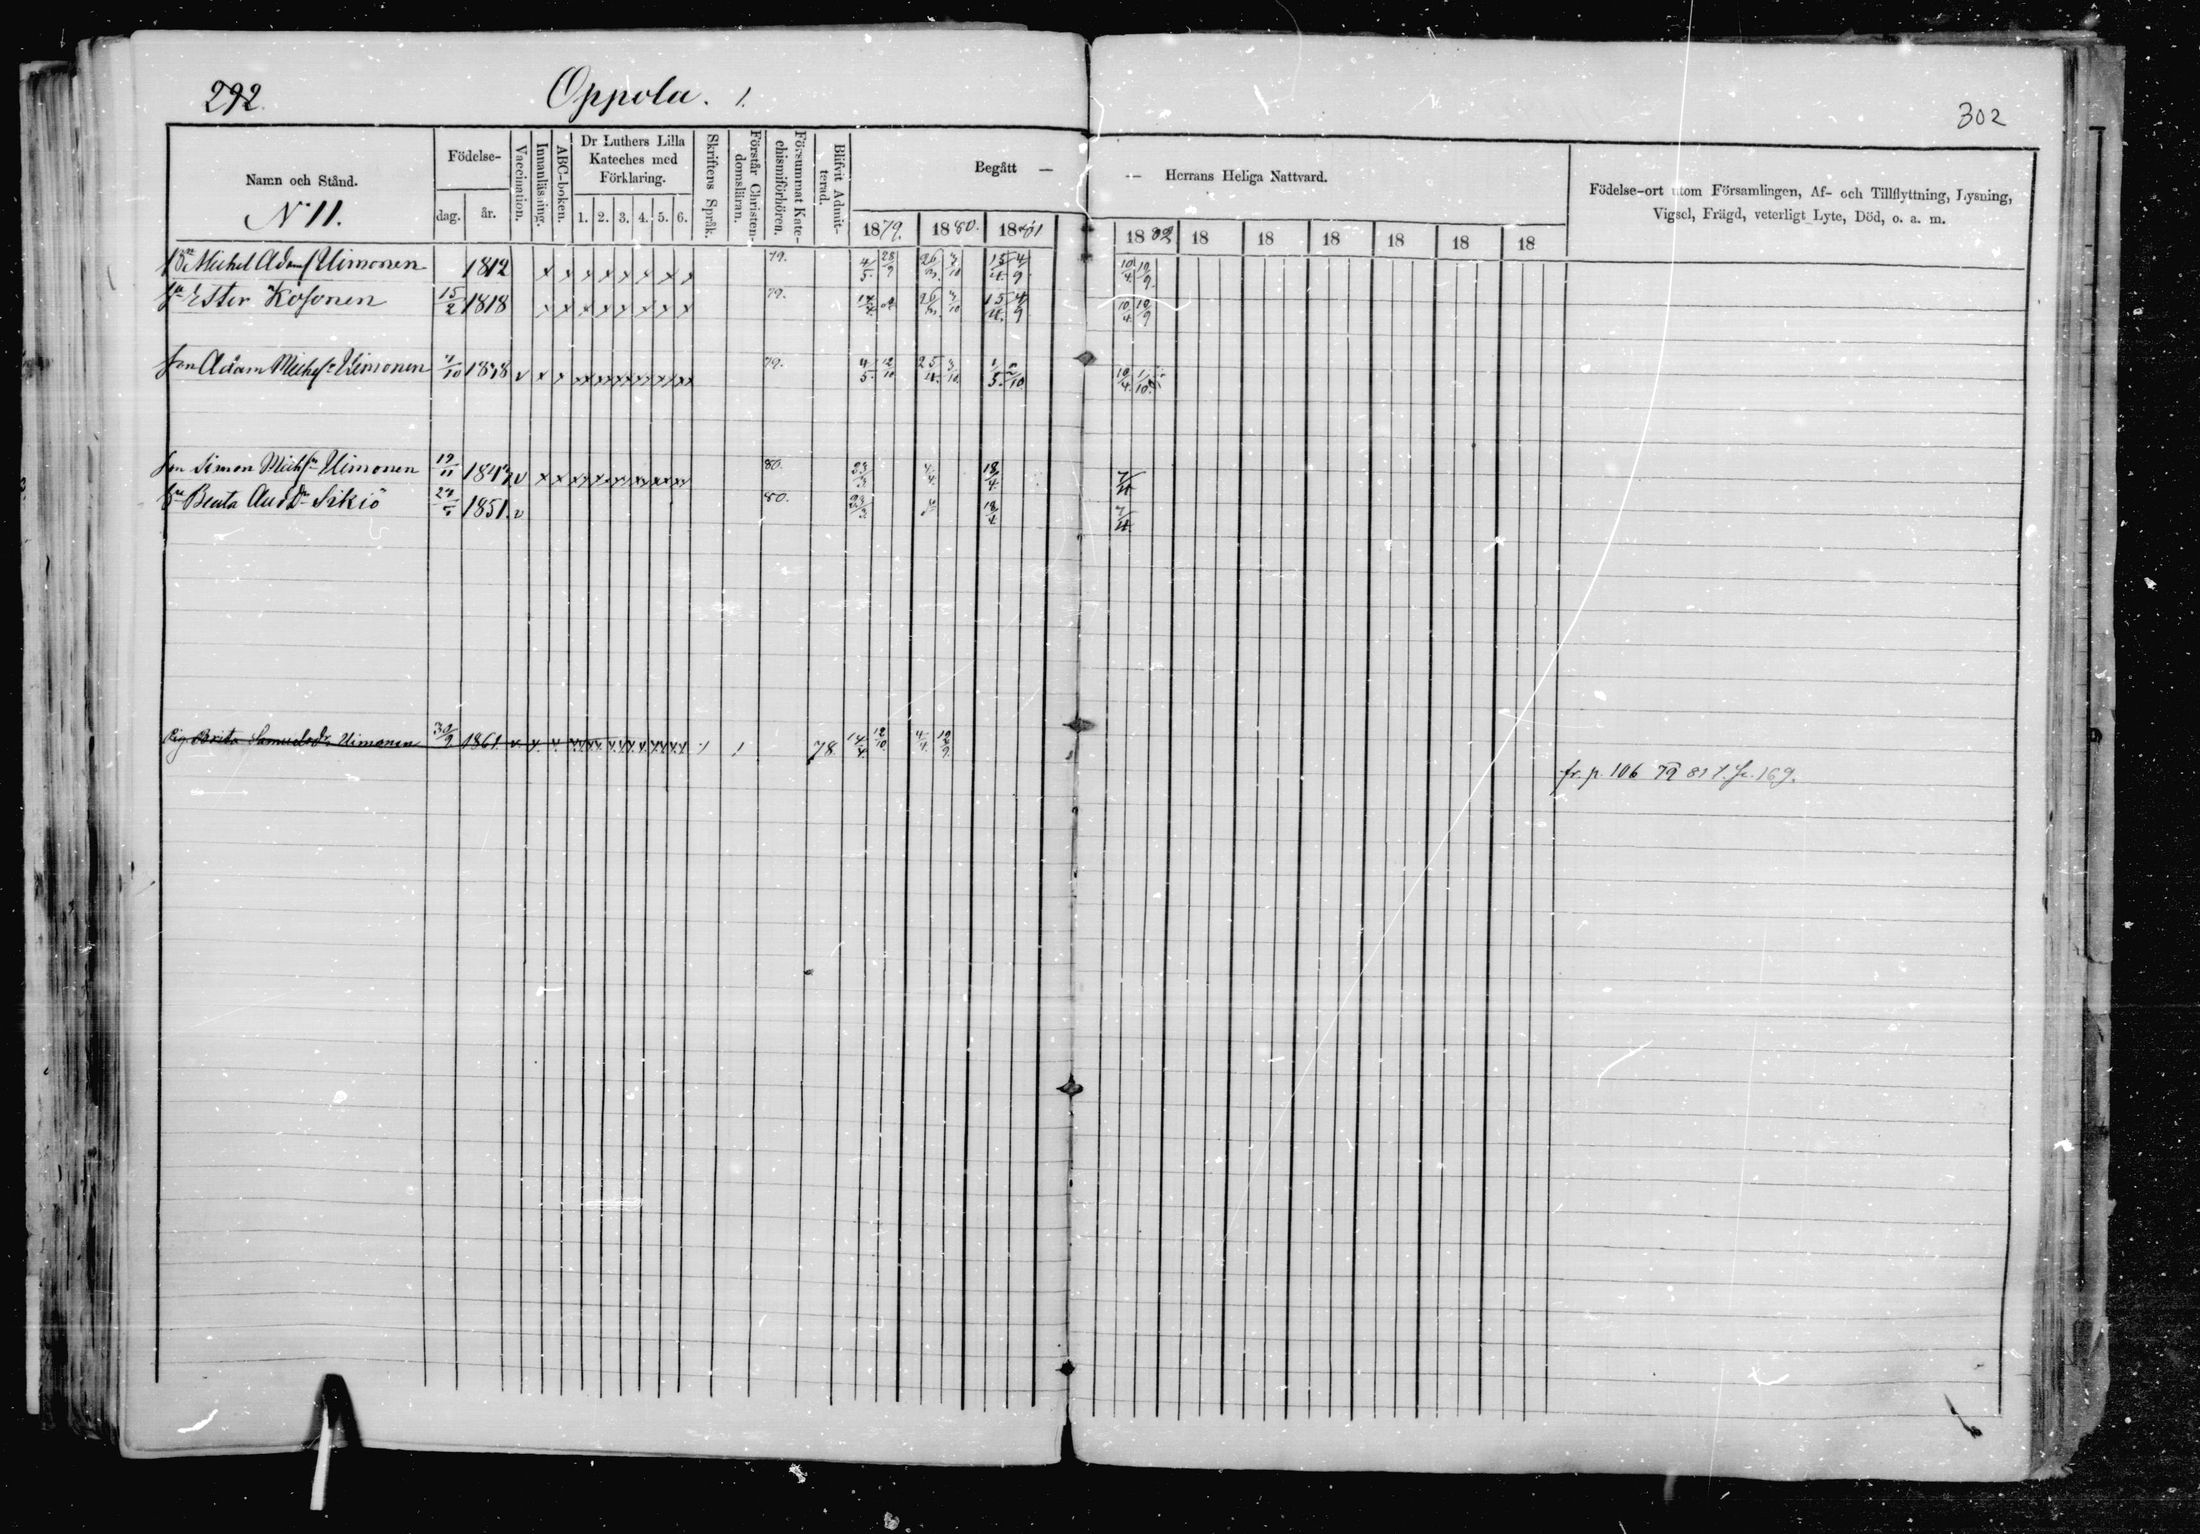 292. Oppola. 1.
302
Namn och Stånd.
N:11.
Födelse-
dag. år.
Vaccination.
Innanläsning.
ABC-boken.
Dr Luthers Lilla
Kateches med
Förklaring.
1. 2. 3. 4. 5. 6.
Skriftens Språk.
Förstår Christen-
domsläran.
Försummat Kate-
chismiförhören.
Blifvit Admit-
terad.
Begått —
— Herrans Heliga Nattvard.
1879. 1880. 1881 1882 18 18 18 18 18 18
Födelse-ort utom Församlingen, Af- och Tillflyttning, Lysning,
Vigsel, Frägd, veterligt Lyte, Död, o. a. m.
Michel Adamss Uimonen 1812 x x x x x x x x 79. 4/5. 28/9 26/3. 3/10 15/4. 4/9 10/4. 19/9
Ester Kosonen 15/2 1818 x x x x x x x x 79. 26/3. 3/10 15/4. 4/9 10/4. 19/9
son Adam Michelss Uimonen 1838 v x x xx xx xx xx xx xx 79. 4/5. 12/10 25/4. 3/10. 1/5. 10/4. 1/10.
son Simon Michss Uimonen 19/11 v x x xx xx xx xx xx xx 80. 23/3 4/4. 18/4 7/4.
Beata Andrdr Sikiö 1851. v 80. 23/3. 18/4 7/4.
Brita Samuelsdr. Uimonen 30/9. 1861. v x. x. 1 78. 14/4. 12/10. 4/4. 19/9.
fr. p. 106 79 81 t. 169.